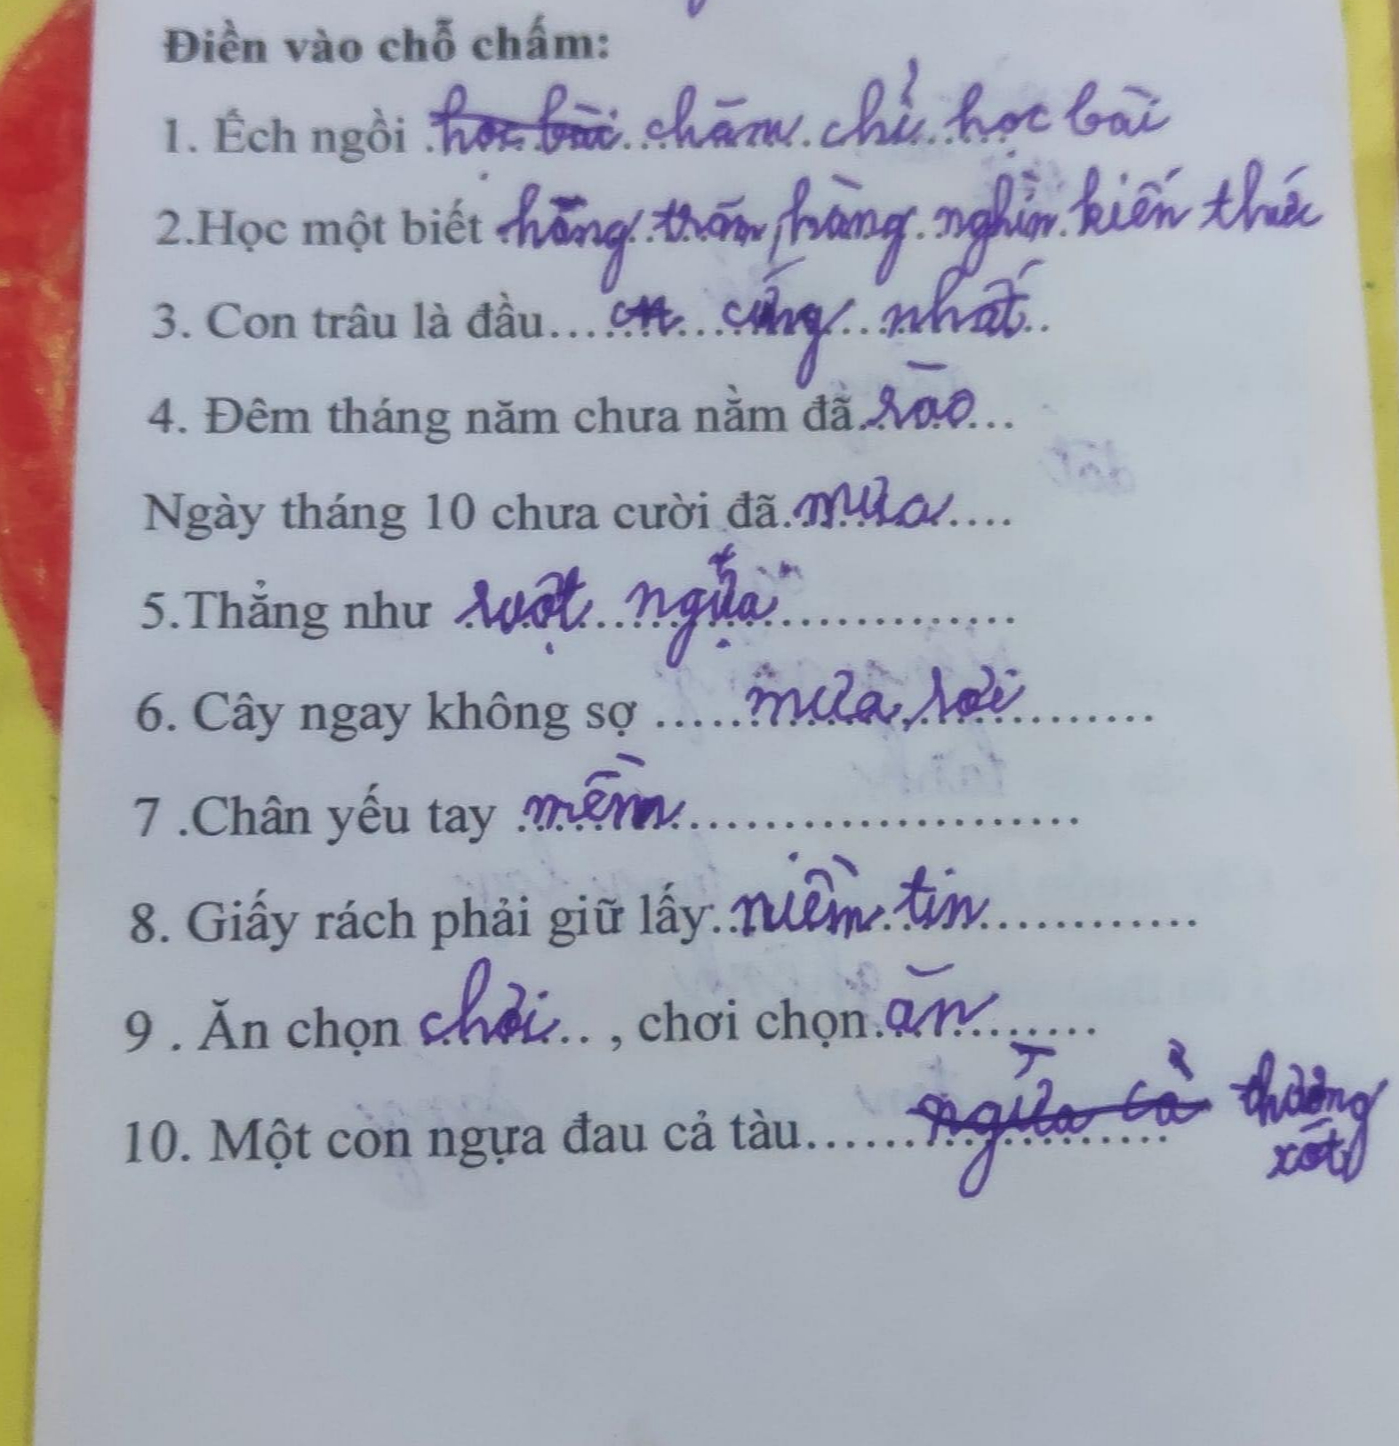 Điền vào chỗ chấm:
1. Ếch ngồi học bài chăm chỉ học bài
2.Học một biết hàng trăm, hàng nghìn kiến thức
3. Con trâu là đầu......... cứng nhất..
4. Đêm tháng năm chưa nằm đã.rào...
Ngày tháng 10 chưa cười đã.mưa....
5.Thẳng như ruột ngựa..............
6. Cây ngay không sợ .....mưa, rơi..........
7 .Chân yếu tay mềm....................
8. Giấy rách phải giữ lấy:..niềm tin............
9 . Ăn chọn chơi.. , chơi chọn.ăn.......
10. Một con ngựa đau cả tàu...... ngựa cả thương
xót